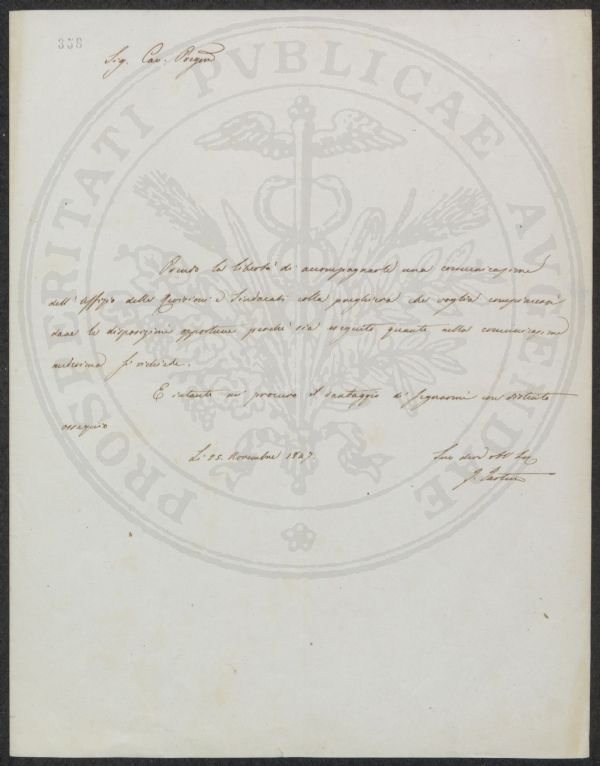 358
Sig. Cav.
Prendo la libertà di accompagnarle una comunicazione
dell'Uffizio delle Revisioni e Sindacati colla preghiera che voglia compiacersi
dare le disposizioni opportune perché sia eseguito quanto nella comunicazione
medesima si richiede.
E intanto mi procuro il vantaggio di segnarmi con distinto
ossequio
Li 25. Novembre 1847
Suo
PROSPERITATI PUBLICAE AUGENDAE